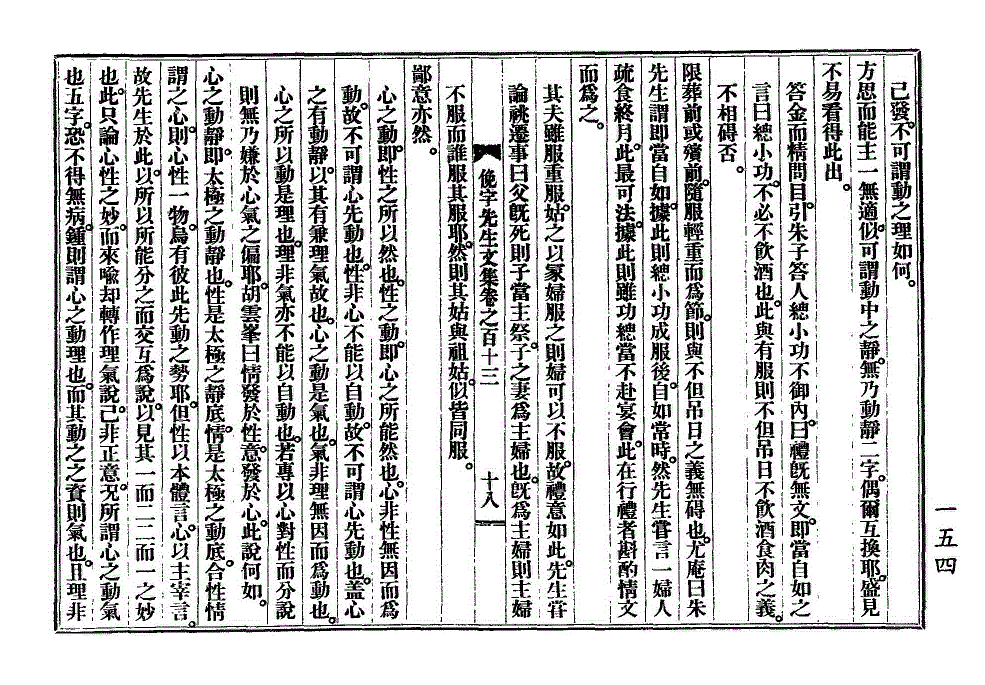 已發。不可謂動之理如何。
方思而能主一無適。似可謂動中之靜。無乃動靜二字。偶爾互換耶。盛見
不易看得此出。
答金而精問目。引朱子答人緦小功不御內。曰禮旣無文。卽當自如之
言曰緦小功。不必不飮酒也。此與有服則不但吊日不飮酒食肉之義。
不相碍否。
限葬前或殯前。隨服輕重而爲節。則與不但吊日之義無碍也。尤庵曰朱
先生謂卽當自如。據此則緦小功成服後。自如常時。然先生嘗言一婦人
疏食終月。此最可法。據此則雖功緦當不赴宴會。此在行禮者斟酌情文
而爲之。
其夫雖服重服。姑之以冢婦服之則婦可以不服。故禮意如此。先生甞
論祧遷事曰父旣死則子當主祭。子之妻爲主婦也。旣爲主婦則主婦
俛宇先生文集卷之百十三
十八
不服而誰服其服耶。然則其姑與祖姑。似皆同服。
鄙意亦然。
心之動。卽性之所以然也。性之動。卽心之所能然也。心非性無因而爲
動。故不可謂心先動也。性非心不能以自動。故不可謂心先動也。蓋心
之有動靜。以其有兼理氣故也。心之動是氣也。氣非理無因而爲動也。
心之所以動是理也。理非氣亦不能以自動也。若專以心對性而分說
則無乃嫌於心氣之偏耶。胡雲峯曰情發於性。意發於心。此說何如。
心之動靜。卽太極之動靜也。性是太極之靜底。情是太極之動底。合性情
謂之心。則心性一物。烏有彼此先動之勢耶。但性以本體言。心以主宰言。
故先生於此。以所以所能分之而交互爲說。以見其一而二二而一之妙
也。此只論心性之妙。而來喩却轉作理氣說。己非正意。况所謂心之動氣
也五字。恐不得無病。鍾則謂心之動理也。而其動之之資則氣也。且理非
一五四